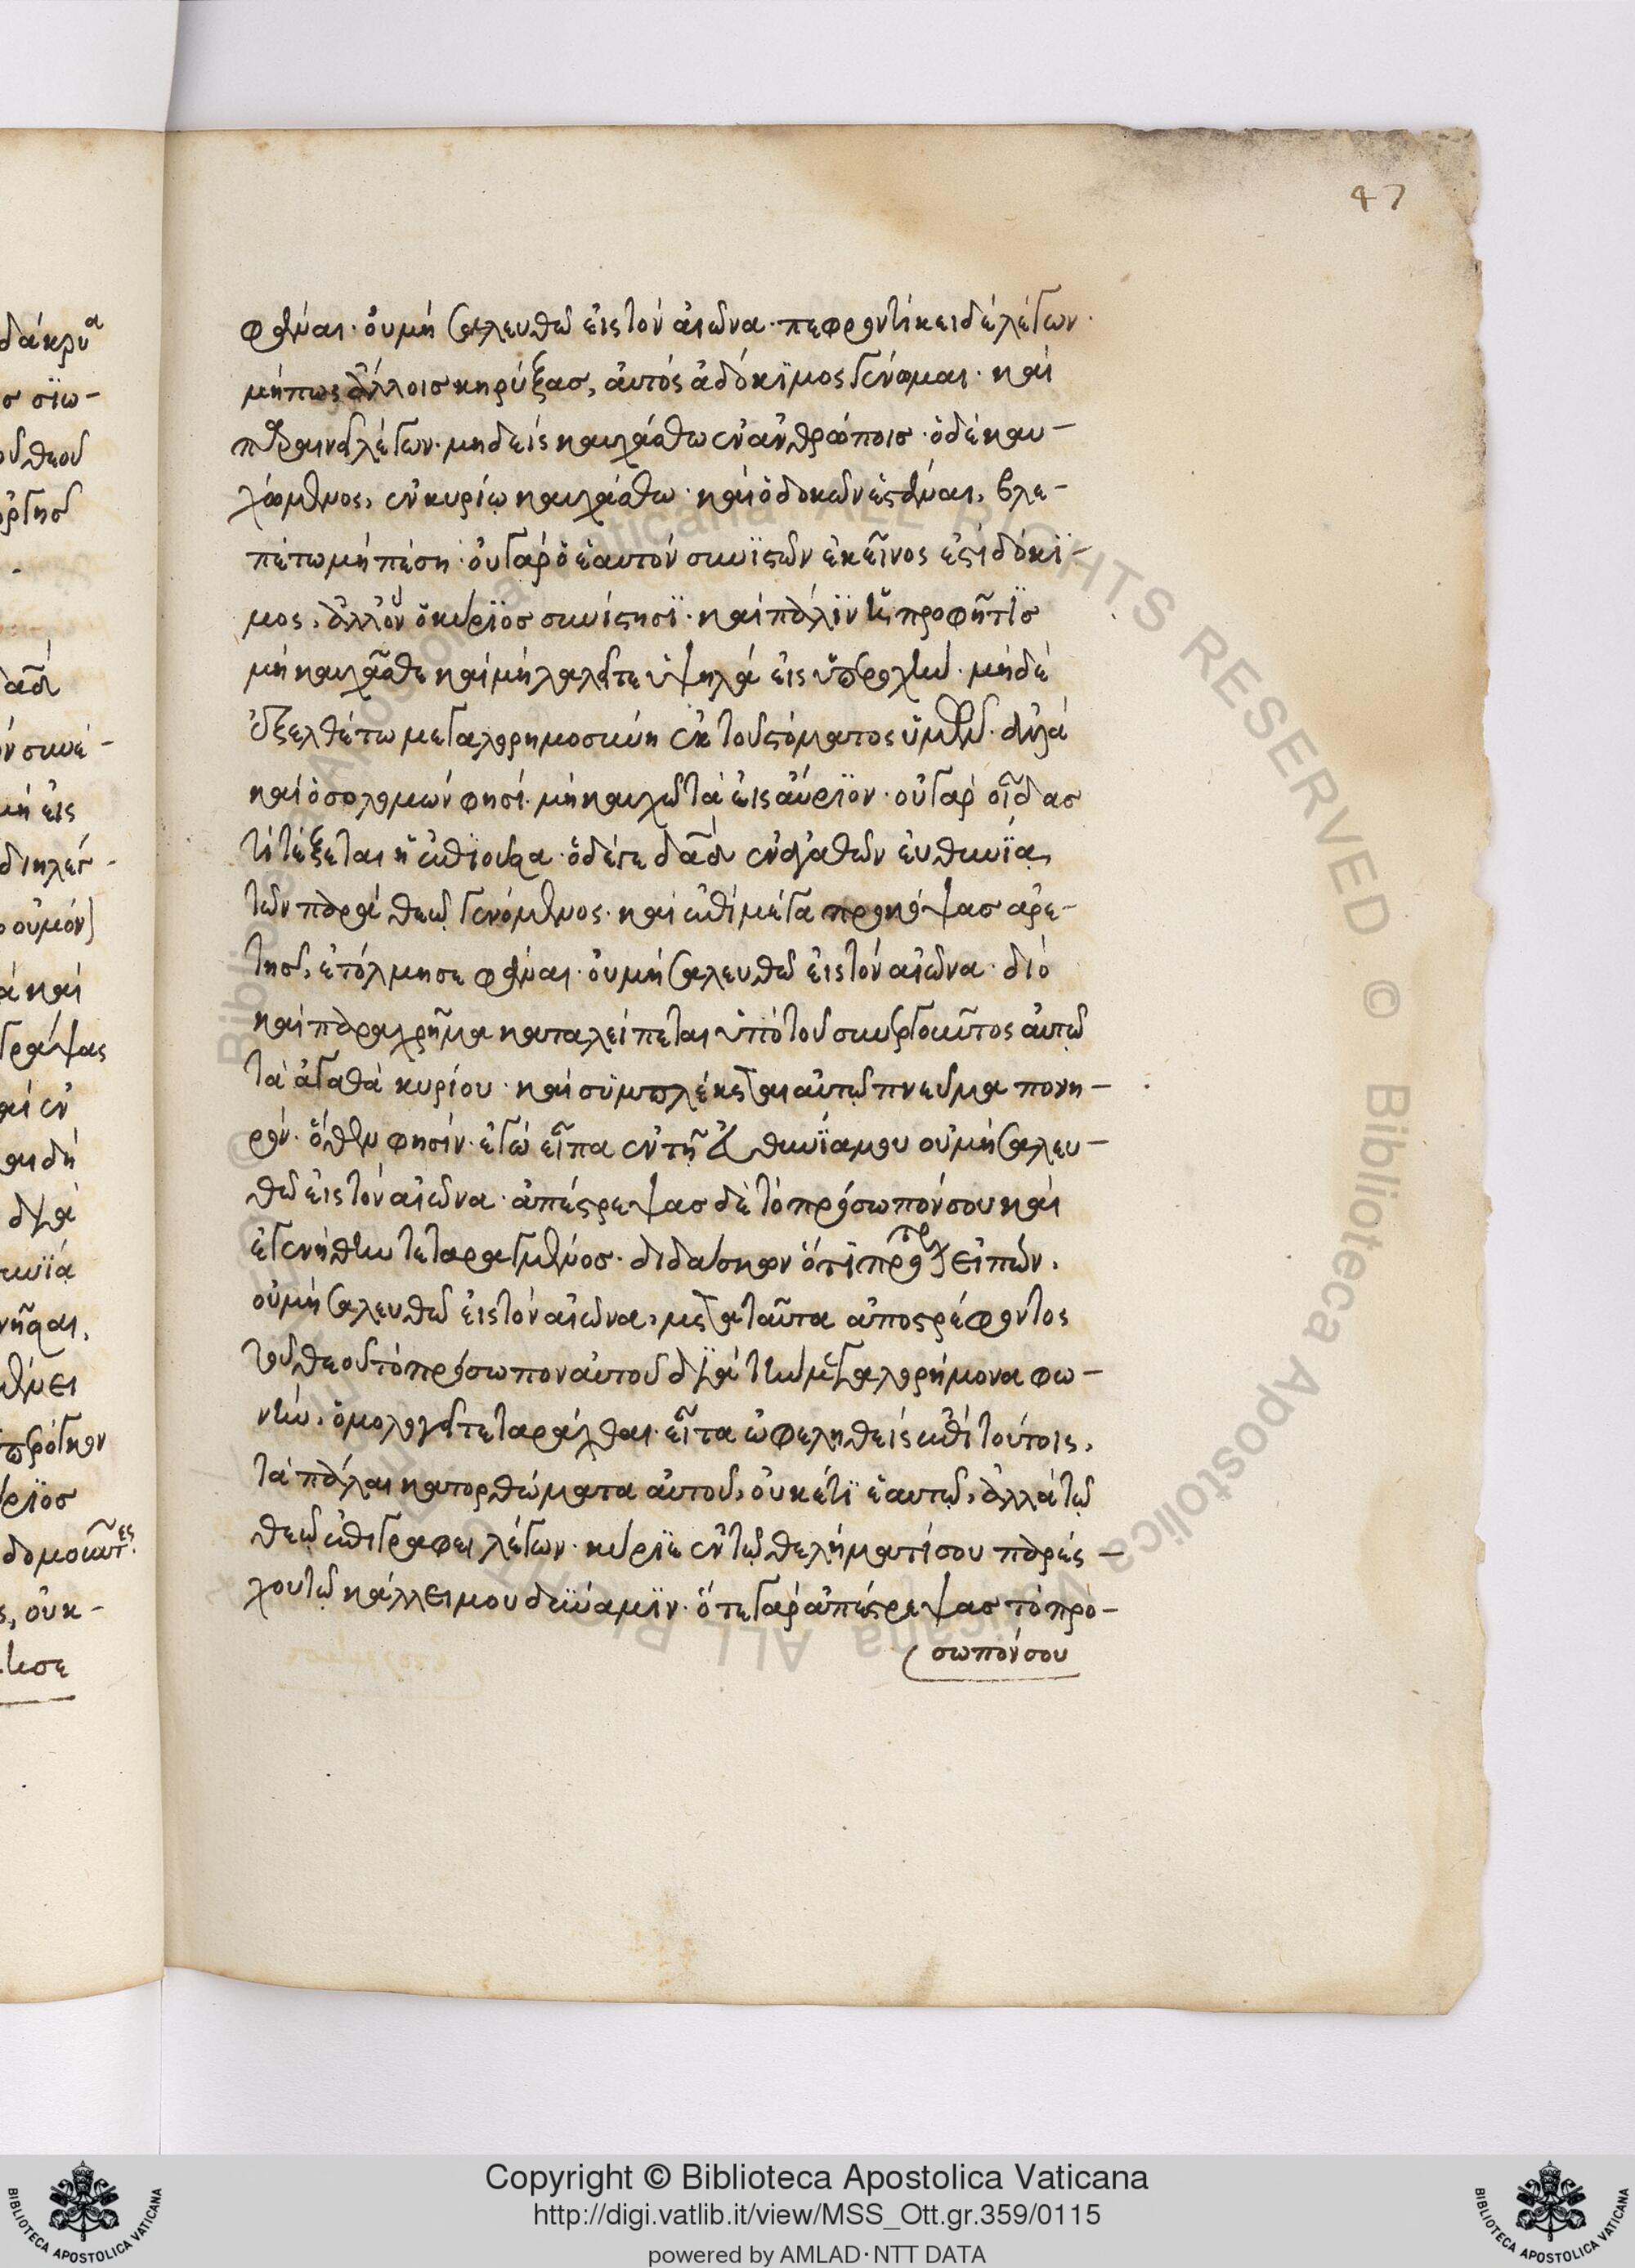 47
φᾶναι· οὐ μὴ σαλευθῶ εἰς τὸν ἀιῶνα· πεφροντίκει δὲ λέγων·
μήπως ἄλλοις κηρύξας, αὐτὸς ἀδόκϊμος γένωμαι· καὶ
παραινεῖ λέγων· μηδεὶς καυχάσθω ἐν ἀνθρώποις· ὁ δὲ καυ-
χώμενος, ἐν κυρίῳ καυχάσθω· καὶ ὁ δοκῶν ἑστάναι, βλε-
πέτω μὴ πέση· οὐ γὰρ ὁ ἑαυτὸν συνϊστῶν ἐκεῖνος ἐστὶ δόκϊ-
μος, ἀλλ' ὃν ὁ κύριος συνίστησϊ· καὶ πάλϊν προφῆτϊς
μὴ καυχᾶσθε καὶ μὴ λαλεῖτε ὑψηλὰ εἰς ὑπεροχήν· μὴδὲ
ἐξελθέτω μεγαλορημοσύνη ἐκ τοῦ στόματος ὑμῶν· ἀλλὰ
καὶ ὁ σολομὼν φησί· μὴ καυχῶ τὰ εἰς αὔριον· οὐ γὰρ οἶδας
τί τέξεται ἡ ἐπιοῦσα· ὁ δέ γε δᾱδ ἐν ἀγαθῶν εὐθηνίᾳ,
τῶν παρὰ θεῷ γενόμενος· καὶ ἐπὶ μέγα προκόψας ἀρε-
τῆς, ἐτόλμησε φᾶναι· οὐ μὴ σαλευθῶ εἰς τὸν αἰῶνα· διὸ
καὶ παραχρῆμα καταλείπεται ὑπὸ τοῦ συνεργοῦντος αὐτῷ
τὰ ἀγαθὰ κυρίου· καὶ συμπλέκεται αὐτῷ πνεῦμα πονη-
ρόν· ὅθεν φησίν· ἐγὼ εἶπα ἐν τῇ εὐθηνίᾳ μου οὐ μὴ σαλευ-
θῶ εἰς τὸν αἰῶνα· ἀπέστρεψας δὲ τὸ πρόσωπόν σου καὶ
ἐγενήθην τεταραγμένος· διδάσκων ὅτι πρότερον εἰπὼν,
οὐ μὴ σαλευθῶ εἰς τὸν αἰῶνα, μετὰ ταῦτα ἀποστρέφοντος
τοῦ θεοῦ τὸ πρόσωπον αὐτοῦ διὰ τὴν μεγαλορήμονα φω-
νὴν, ὁμολογεῖ τεταράχθαι· εἶτα ὠφεληθεὶς ἐπὶ τούτοις,
τὰ πάλαι κατορθώματα αὐτοῦ, οὐκέτϊ ἑαυτῷ, ἀλλὰ τῷ
θεῷ ἐπιγράφει λέγων· κύριε ἐν τῷ θελήματί σου παρές-
χου τῷ κάλλει μου δύναμϊν· ὅτε γὰρ ἀπέστρεψας τὸ πρό-
σωπόν σου
Copyright © Biblioteca Apostolica Vaticana
http://digi.vatlib.it/view/MSS_Ott.gr.359/0115
powered by AMLAD·NTT DATA